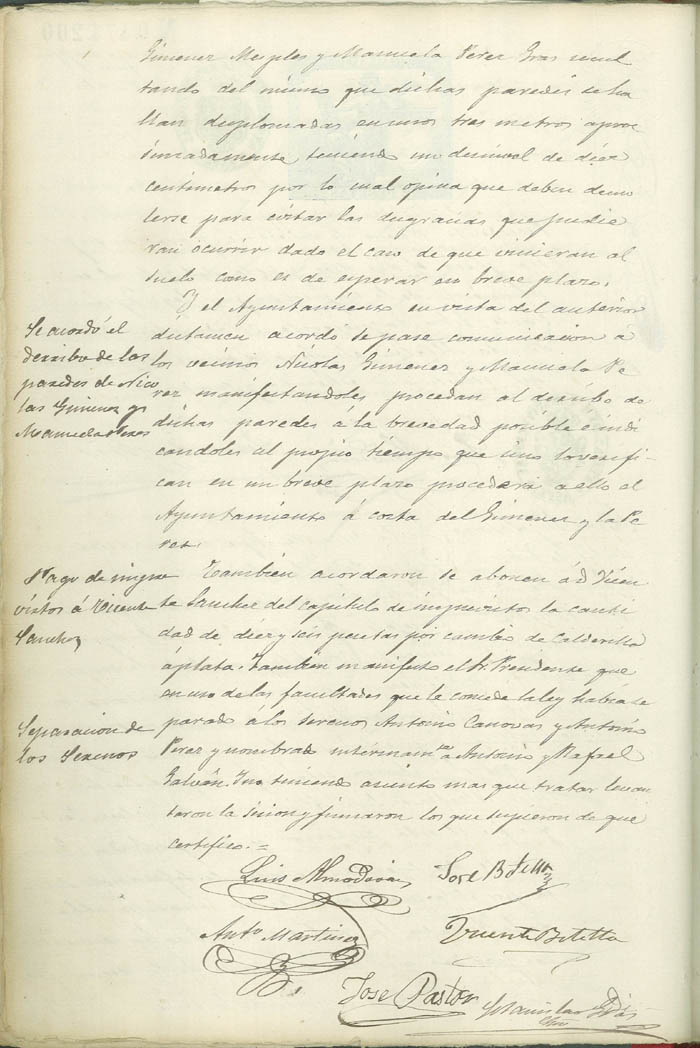 Gimenez Mesples y Manuela Perez Gras resul
tando del mismo que dichas paredes se ha
llan desplomadas en unos tres metros aproc
simadamente, teniendo un desnivel de diez
centimetros por lo cual opina que deben demo
lerse para evitar las desgracias que pudie
ran ocurrir dado el caso de que vinieran al
suelo como es de esperar en breve plazo.
Se acordó el
derribo de las
paredes de Nico
las Gimenez y
Manuela Perez
Y el Ayuntamiento en vista del anterior
dictamen acordó se pase comunicacion á
los vecinos Nicolas Gimenez y Manuela Pe
rez manifestandoles procedan al derribo de
dichas paredes á la brevedad posible é indi
candoles al propio tiempo que sino lo verifi-
can en un breve plazo procederá a ello el
Ayuntamiento á costa del Gimenez y la Pe
rez.
Pago de impre
vistos á Vicente
Sanchez
Tambien acordaron se abonen á D. Vicen
te Sanchez del capitulo de imprevistos la canti
dad de diez y seis pesetas por cambio de Calderilla
á plata. Tambien manifestó el Sr. Presidente que
en uso de las facultades que le concede la ley habia se
Separacion de
los Serenos
parado á los serenos Antonio Canovas y Antonio
Perez y nombrado interinamte. á Antonio y Rafael
Galván. Y no teniendo asunto mas que tratar levan
taron la sesion y firmaron los que supieron de que
certifico.=
Luis Almodovar
José Botella
Anto. Martinez
Vicente Botella
José Pastor
Estanislao